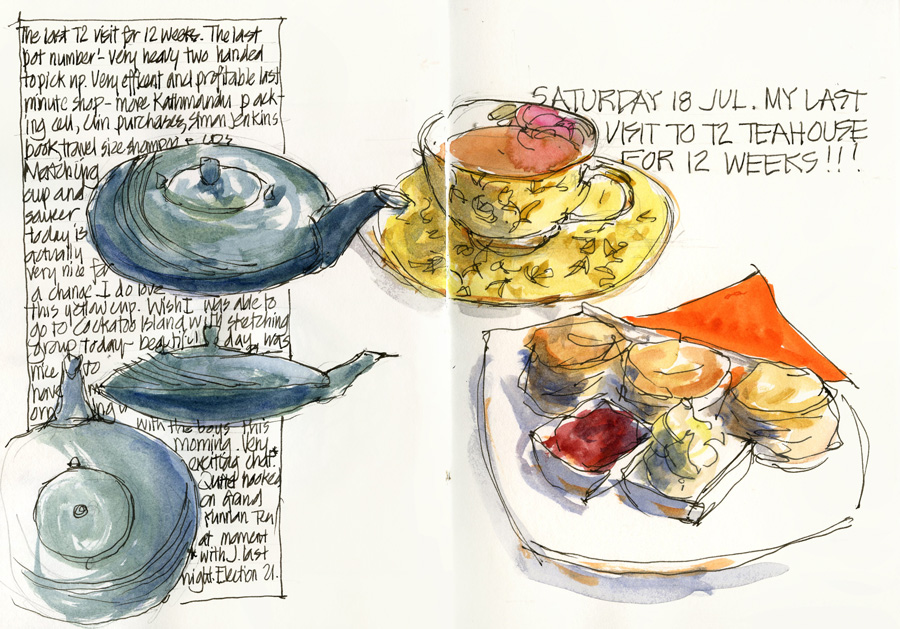 The last T2 visit for 12 weeks. The last
pot number 1 - very heavy two handed
to pick up. Very efficent and profitable last
minute shop - more Kathmandu pack-
ing cell, purchases, Simon Jenkins
book, travel size shampoo
Matching
cup and
saucer
today is
actually
very nice for
a change. I do love
this yellow cup. Wish I was able to
go to Cockatoo Island with sketching
group today - beautiful day, was
nice to
have
with the boys this
morning. Very
exciting chat.
Quite hooked
on Grand
Yunnan Tea
at moment
* with J. last
night. Election 21.
SATURDAY 18 JUL. MY LAST
VISIT TO T2 TEAHOUSE
FOR 12 WEEKS!!!